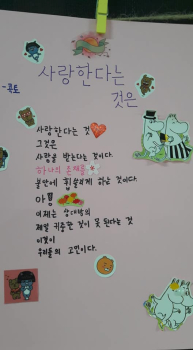 사랑한다는
것은
사랑한다는 것
그것은
사랑을 받는다는 것이다.
하나의 존재를
불안에 휩쓸리게 하는 것이다.
아
이제는 상대방의
제일 귀중한 것이 못 된다는 것
이것이
우리들의 고민이다.